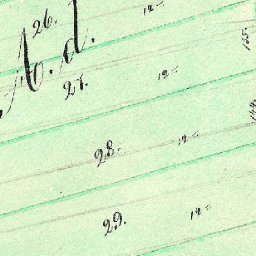 26. 12 –
A. d.
27. 12 –
28. 12 –
29. 12 –